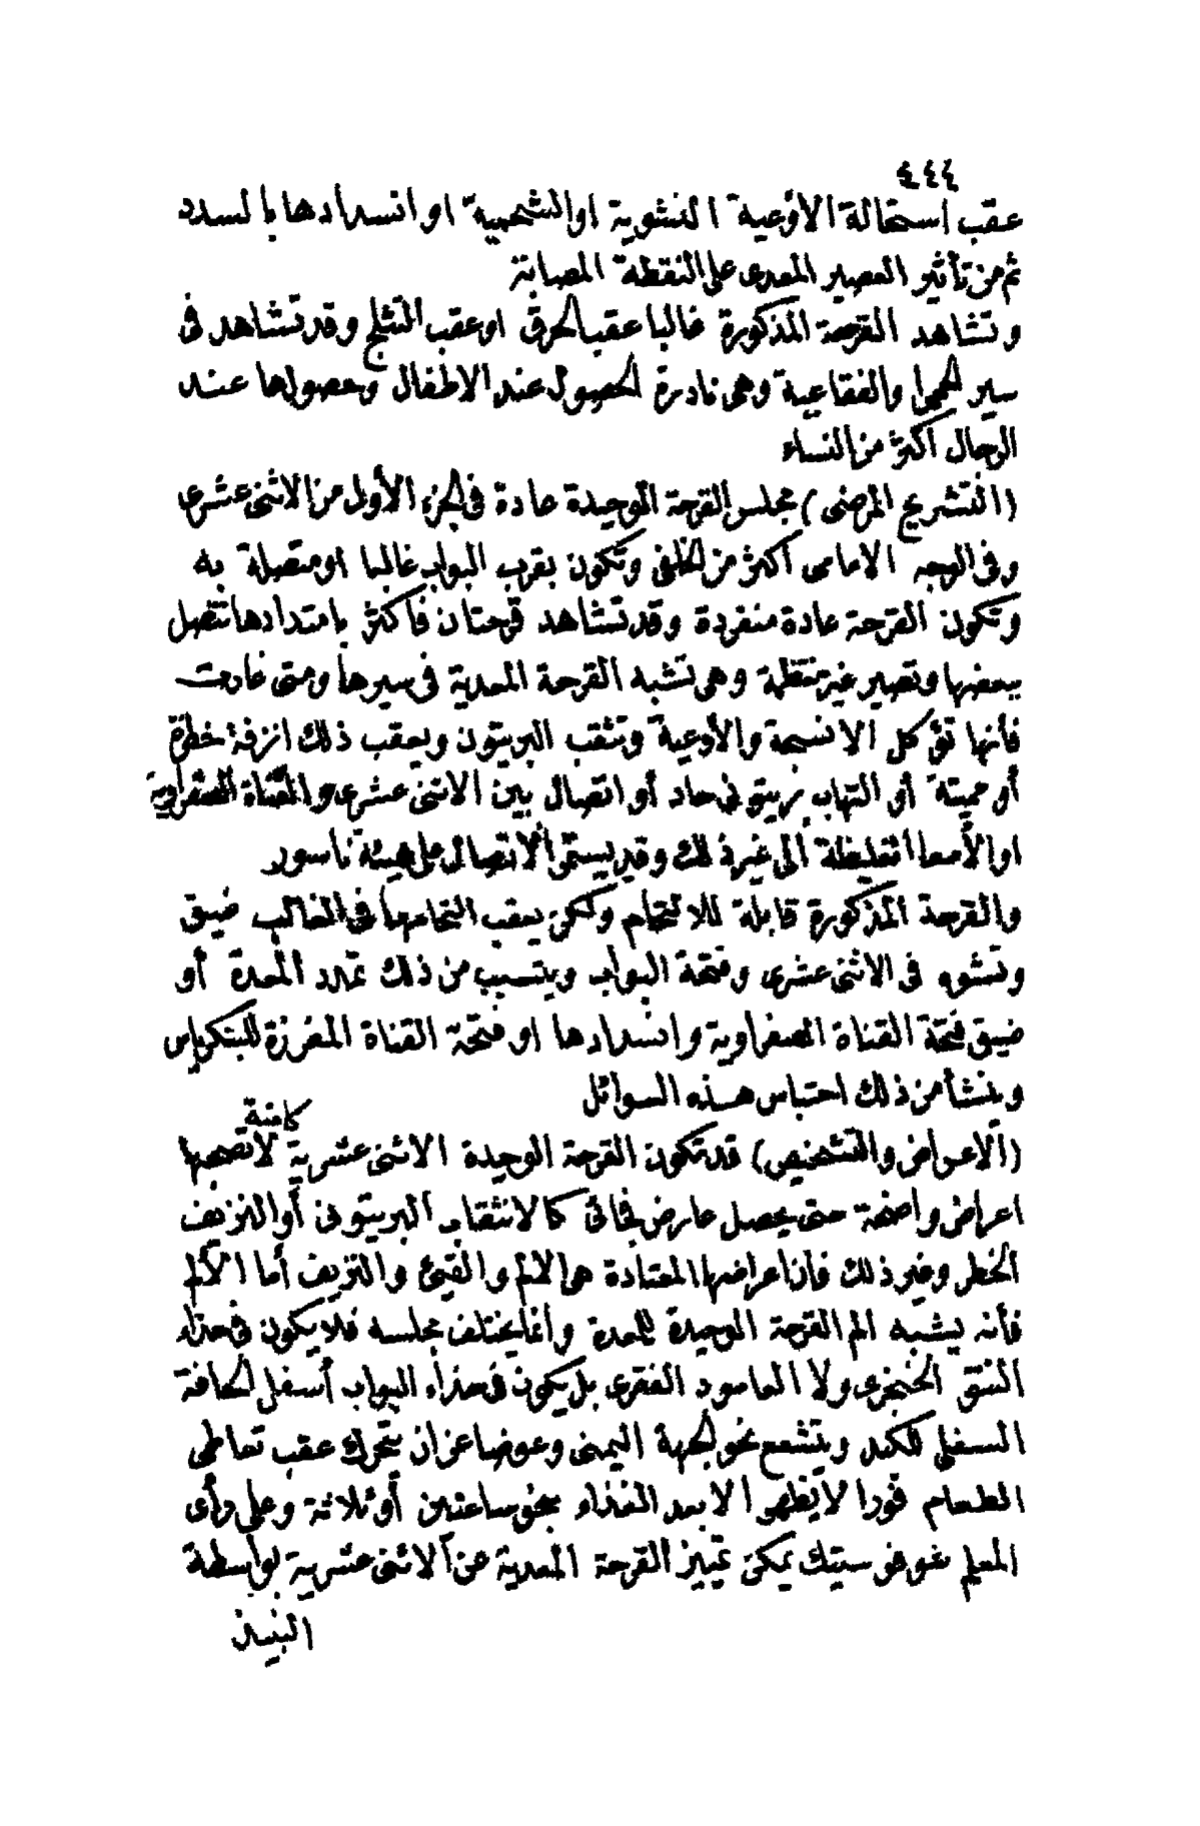 ٤٤٤
عقب استحالة الأوعية النشوية او الشحمية او انسدادها بالسدد
ثم من تأثير العصير المعدى على النقطة المصابة
وتشاهد القرحة المذكورة غالبا عقب الحرق او عقب التثلج وقد تشاهد فى
سير الحمرا والفقاعية وهى نادرة الحصول عند الاطفال وحصولها عند
الرجال اكثر من النساء
(التشريح المرضى) مجلس القرحة الوحيدة عادة فى الجزء الأول من الاثنى عشرى
وفى الوجه الامامى اكثر من الخلفى وتكون بقرب البواب غالبا او متصلة به
وتكون القرحة عادة منفردة وقد تشاهد قرحتان فأكثر بامتدادها تتصل
ببعضها وتصير غير منتظمة وهى تشبه القرحة المعدية فى سيرها ومتى غارت
فأنها تؤكل الانسجة والأوعية وتثقب البريتون ويعقب ذلك انزفة خطرة
أو مميتة أو التهاب بريتونى حاد أو اتصال بين الاثنى عشرى والقناة الصفراوية
او الأمعا الغليظة الى غير ذلك وقد يستمر الاتصال على هيئة ناسور
والقرحة المذكورة قابلة للالتحام ولكن يعقب التحامها فى الغالب ضيق
وتشوه فى الاثنى عشرى وفتحة البواب ويتسبب من ذلك تمدد المعدة أو
ضيق فتحة القناة الصفراوية وانسدادها او فتحة القناة المفرزة للبنكرياس
وينشأ من ذلك احتباس هذه السوائل
(الاعراض والتشخيص) قد تكون القرحة الوحيدة الاثنى عشرية كامنة لا تصحبها
اعراض واضحة حتى يحصل عارض فجائى كالانثقاب البريتونى أو النزيف
الخطر وغير ذلك فان اعراضها المعتادة هى الالم والقيئ والنزيف أما الألم
فأنه يشبه الم القرحة الوحيدة للمعدة وانما يختلف مجلسه فلا يكون فى حذاء
النتق الخنجرى ولا العامود الفقرى بل يكون فى حذاء البواب أسفل الحافة
السفلى للكبد ويتشعع نحو الجهة اليمنى وعوضا عن ان يتحرك عقب تعاطى
الطعام فورا لا يظهر الا بعد الغذاء بنحو ساعتين أو ثلاثة وعلى رأى
المعلم يمكن تمييز القرحة المعدية عن الاثنى عشرية بواسطة
النبيذ